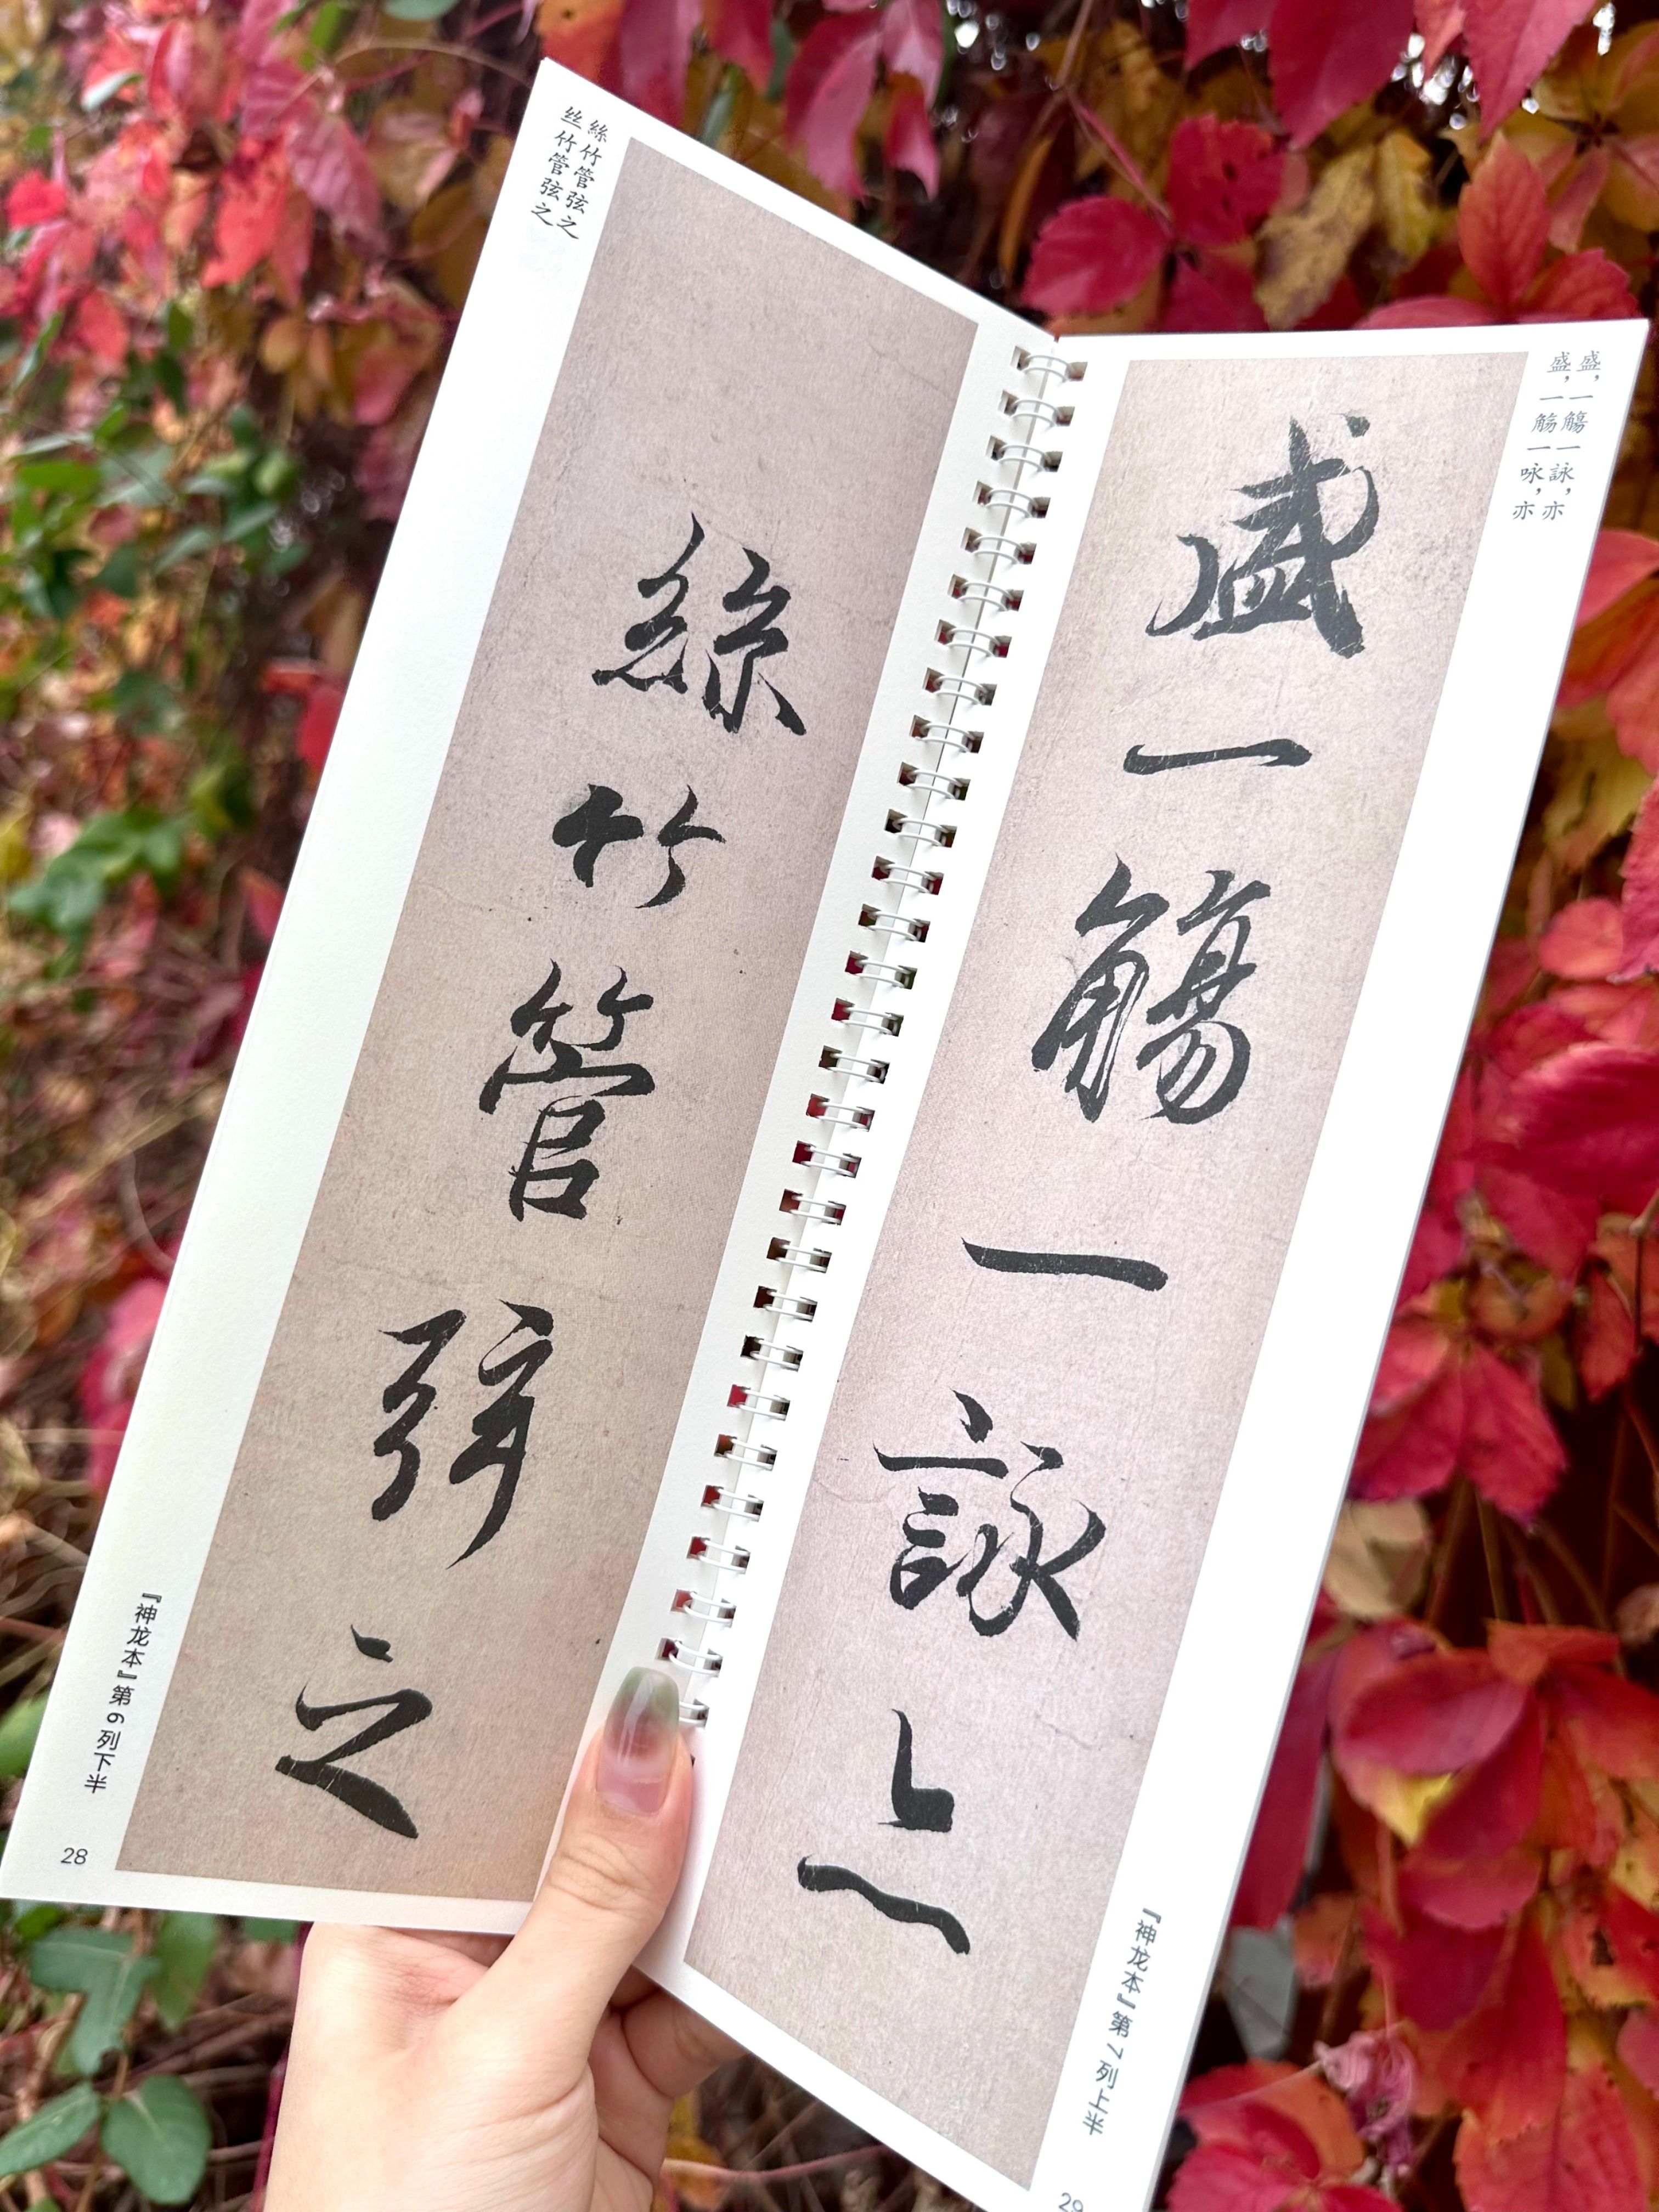 絲竹管弦之
丝竹管弦之
絲竹管弦之
『神龙本』第6列下半
28
盛，一觴一詠，亦
盛，一觞一咏，亦
盛一觴一詠亦
『神龙本』第7列上半
29